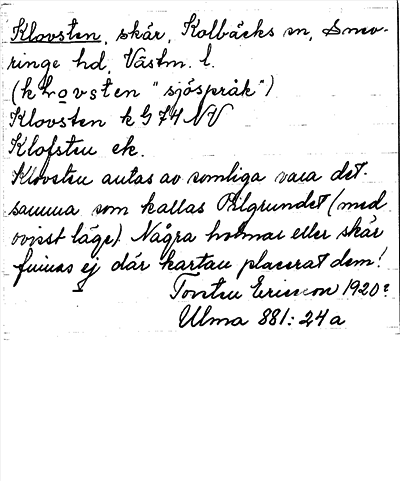 Klovsten, skär, Kolbäcks sn, Snev-
ringe hd, Västm. l.
(klovsten "sjöspråk")
Klovsten k G 74 NV
Klofsten ek.
Klovsten antas av somliga vara det-
samma som kallas Pilgrundet (med
ovisst läge). Några holmar eller skär
finnas ej där kartan placerat dem!
Torsten Ericsson 1920?
Ulma 881: 24a